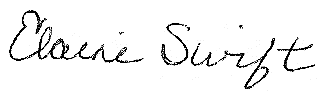 Elaine Swift